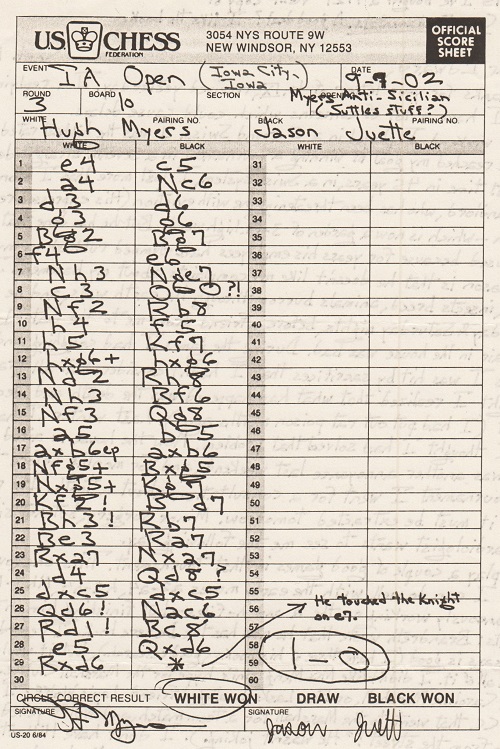 US CHESS
FEDERATION
3054 NYS ROUTE 9W
NEW WINDSOR, NY 12553
OFFICIAL
SCORE
SHEET
EVENT IA Open (Iowa City, Iowa) DATE 9-9-02
ROUND 3 BOARD 10 SECTION Myers Anti-Sicilian
(Suttles stuff?)
WHITE Hugh Myers PAIRING NO. BLACK Jason Juette PAIRING NO.
WHITE BLACK WHITE BLACK
1 e4 c5 31
2 a4 Nc6 32
3 d3 d6 33
4 g3 g6 34
5 Bg2 Bg7 35
6 f4 e6 36
7 Nh3 Nge7 37
8 c3 O-O?! 38
9 Nf2 Rb8 39
10 h4 f5 40
11 h5 Kf7 41
12 hxg6+ hxg6 42
13 Nd2 Rh8 43
14 Nh3 Bf6 44
15 Nf3 Qd8 45
16 a5 b5 46
17 axb6ep axb6 47
18 Nfg5+ Bxg5 48
19 Nxg5+ Kg7 49
20 Kf2! Bd7 50
21 Bh3! Rb7 51
22 Be3 Ra7 52
23 Rxa7 Nxa7 53
24 d4 Qd8? 54
25 dxc5 dxc5 55
26 Qd6! Nac6 56
27 Rd1! Bc8 57
28 e5 Qxd6 58
29 Rxd6 * 59
30 60
He touched the Knight
on e7.
1-0
CIRCLE CORRECT RESULT WHITE WON DRAW BLACK WON
SIGNATURE SIGNATURE Jason Juett
US-20 6/84